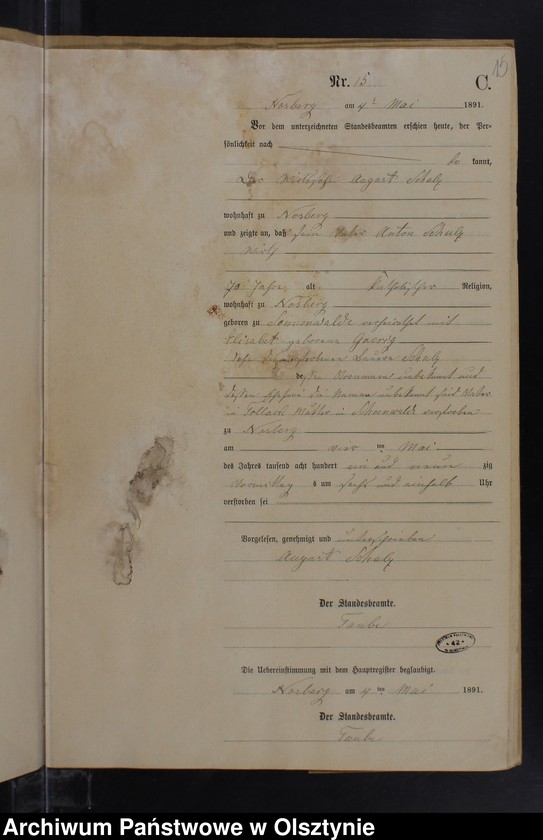 15
Nr. 15 C.
Norberg am 4ᵗ Mai 1891.
Vor dem unterzeichneten Standesbeamten erschien heute, der Per-
sönlichkeit nach
be kannt,
Der August Schulz
wohnhaft zu Norberg
und zeigte an, daß sein Vater Anton Schulz
Wirth
70 Jahre alt Katholischer Religion,
wohnhaft zu Norberg
geboren zu Sonnwalde verheirathet mit
Elisabet geborene
Sohn des verstorbenen Bauern Schulz
dessen Vornamen unbekannt und
dessen Ehefrau die Namen unbekannt sind Vater
in Mutter in verstorben
zu Norberg
am vier ten Mai
des Jahres tausend acht hundert ein und neun zig
Vormittag s um sechs und einhalb Uhr
verstorben sei
Vorgelesen, genehmigt und unterschrieben
August Schulz
Der Standesbeamte.
Taube
42
Die Uebereinstimmung mit dem Hauptregister beglaubigt.
Norberg am 4 ten Mai 1891.
Der Standesbeamte.
Taube
Archiwum Państwowe w Olsztynie